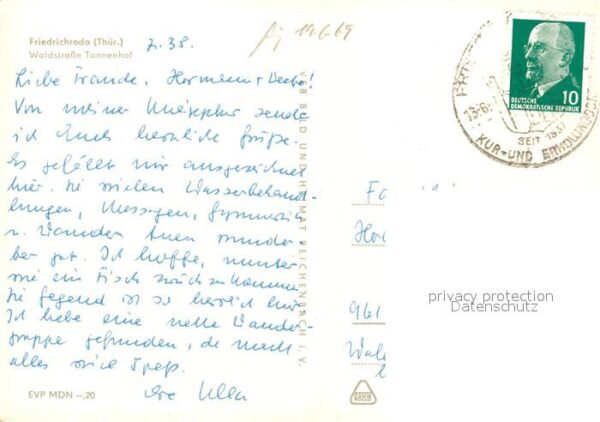 Friedrichroda (Thür.)
Waldstraße Tannenhof
z. 38.
19.6.69
Liebe Freunde, Hermann +
Von meiner sende
ich Euch herzliche Grüße.
Es gefällt mir ausgezeichnet
hier. Die vielen Wasserbehand-
lungen, Massagen, Gymnastik
u. Wandern tun wunder-
bar gut. Ich hoffe, munter
wie ein Fisch zurückzukommen.
Die Gegend ist so herrlich hier.
Ich habe eine nette Wander-
gruppe gefunden, da macht
alles viel Spaß.
Ulla
EVP MDN –,20
VEB BILD UND HEIMAT REICHENBACH i. V.
10
DEUTSCHE
DEMOKRATISCHE REPUBLIK
SEIT 1837
KUR- UND
Fa
Her
961
Wal
privacy protection
Datenschutz